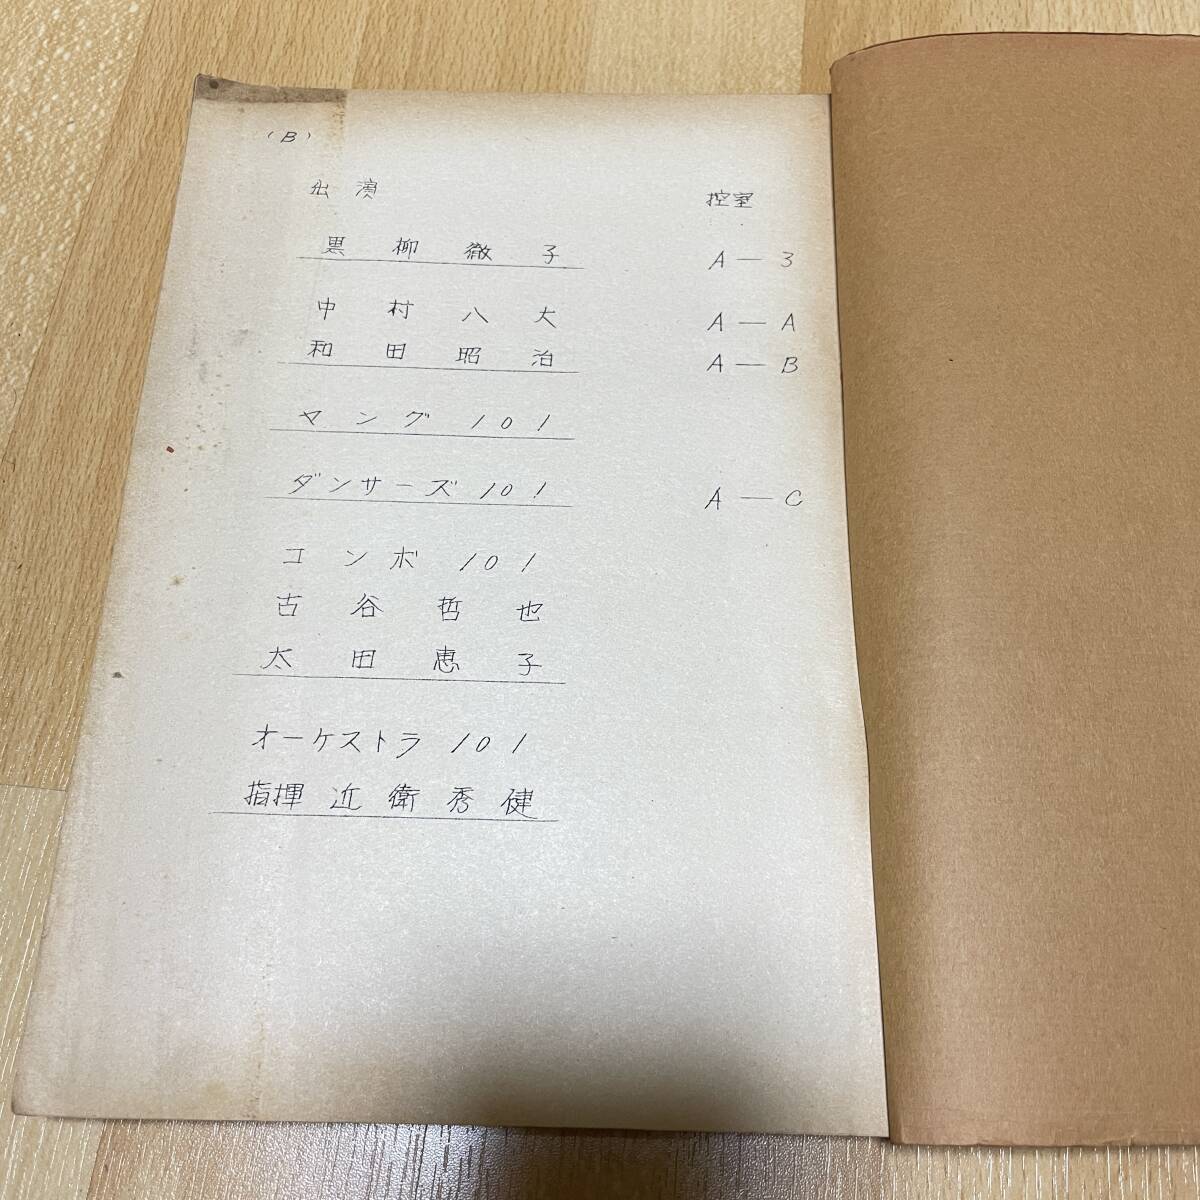 (B)
出演 控室
黒柳徹子 A－3
中村八大 A－A
和田昭治 A－B
ヤング101
ダンサーズ101 A－C
コンボ101
古谷哲也
太田恵子
オーケストラ101
指揮 近衛秀健